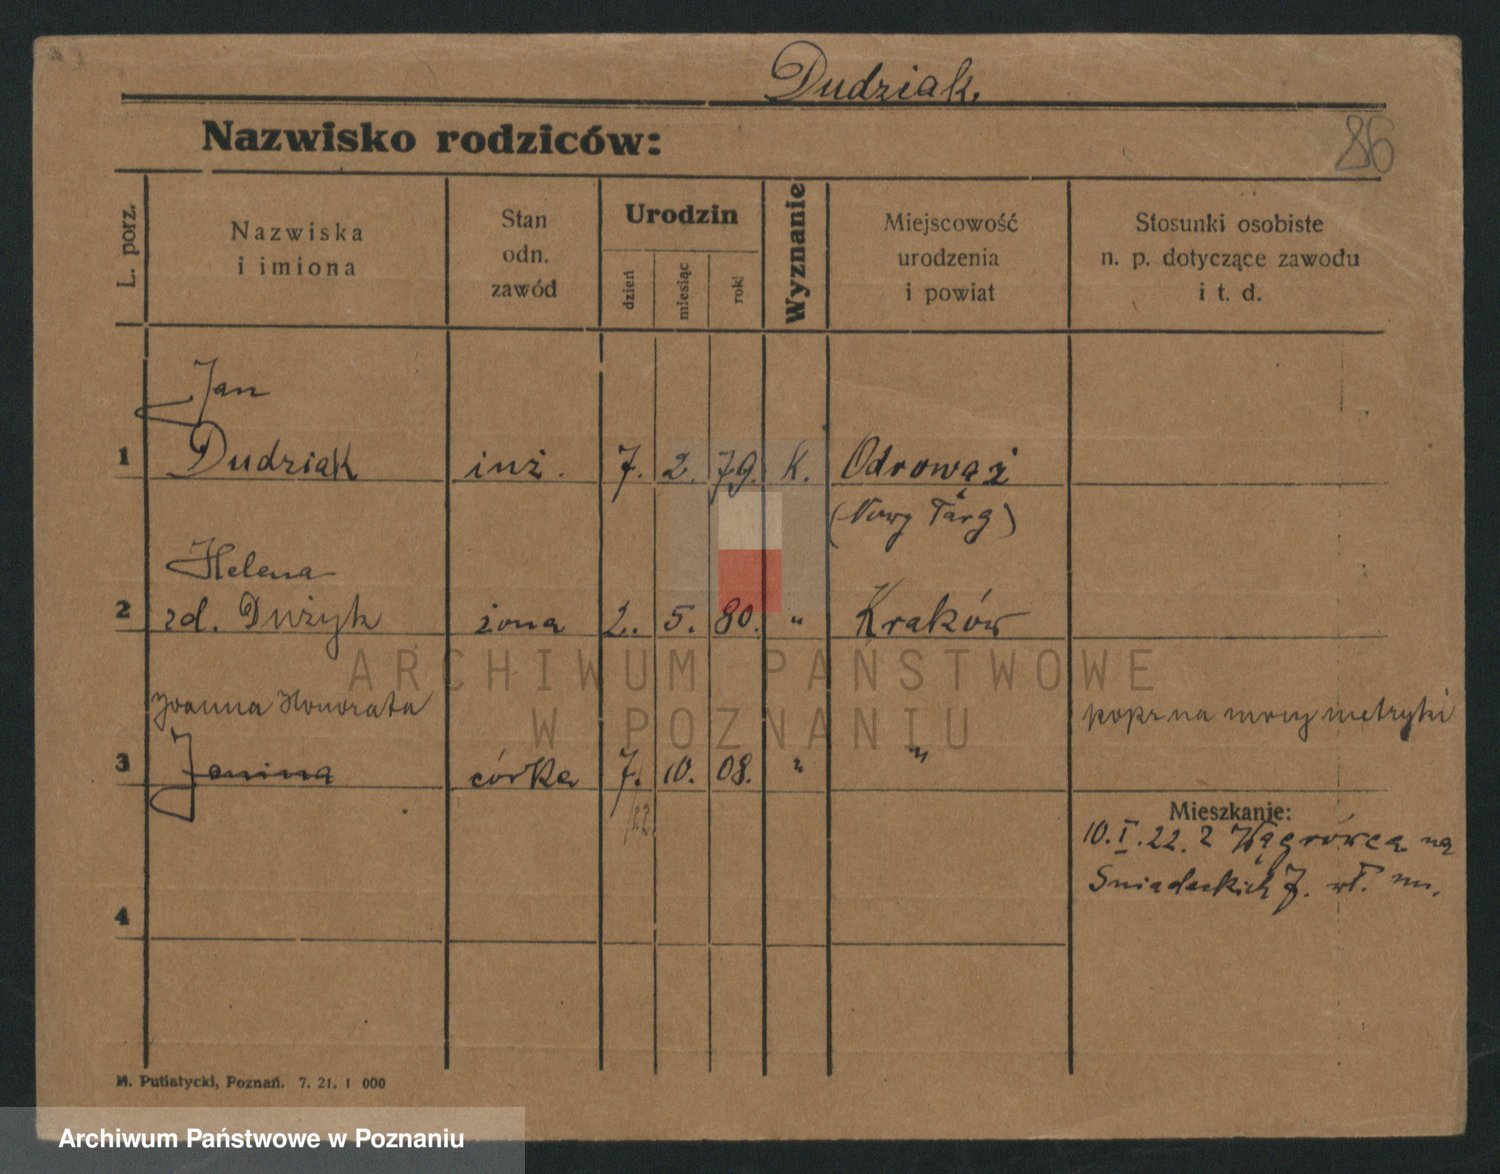 Dudziak.
Nazwisko rodziców:
86
L. porz.
Nazwiska
i imiona
Stan
odn.
zawód
Urodzin
dzień
miesiąc
rok
Wyznanie
Miejscowość
urodzenia
i powiat
Stosunki osobiste
n. p. dotyczące zawodu
i t. d.
Jan
1 Dudziak inż. 7. 2. 79. K. Odrowąż
(Nowy Targ)
Helena
2 zd. Dużyk żona 2. 5. 80. " Kraków
Joanna Honorata popr na mocy metryki
3 Janina córka 7. 10. 08. " "
/22
Mieszkanie:
10.I.22. z Wągrówca na
Sniadeckich 7. wł. m.
4
ARCHIWUM PAŃSTWOWE
W POZNANIU
M. Putiatycki, Poznań. 7. 21. 1 000
Archiwum Państwowe w Poznaniu